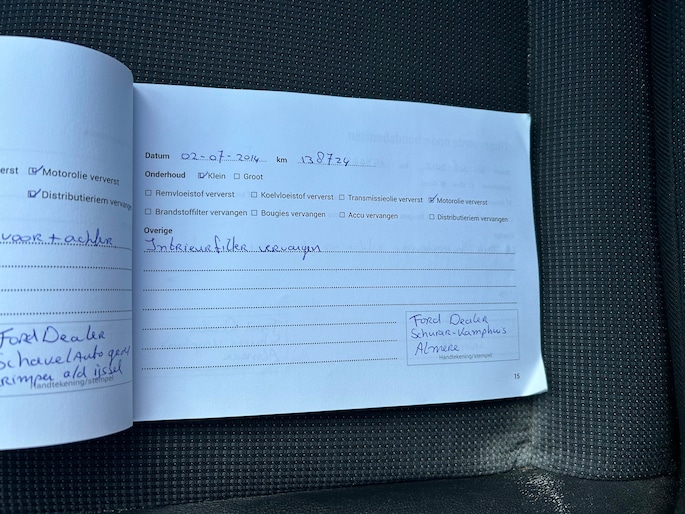 erst ☑ Motorolie ververst
☑ Distributieriem vervangen
voor + achter
Ford Dealer
Schavel Auto
krimpen a/d ijssel
Handtekening/stempel
Datum 02-07-2014 km 138724
Onderhoud ☑ Klein ☐ Groot
☐ Remvloeistof ververst ☐ Koelvloeistof ververst ☐ Transmissieolie ververst ☑ Motorolie ververst
☐ Brandstoffilter vervangen ☐ Bougies vervangen ☐ Accu vervangen ☐ Distributieriem vervangen
Overige
Interieurfilter vervangen
Ford Dealer
Almere
Handtekening/stempel
15